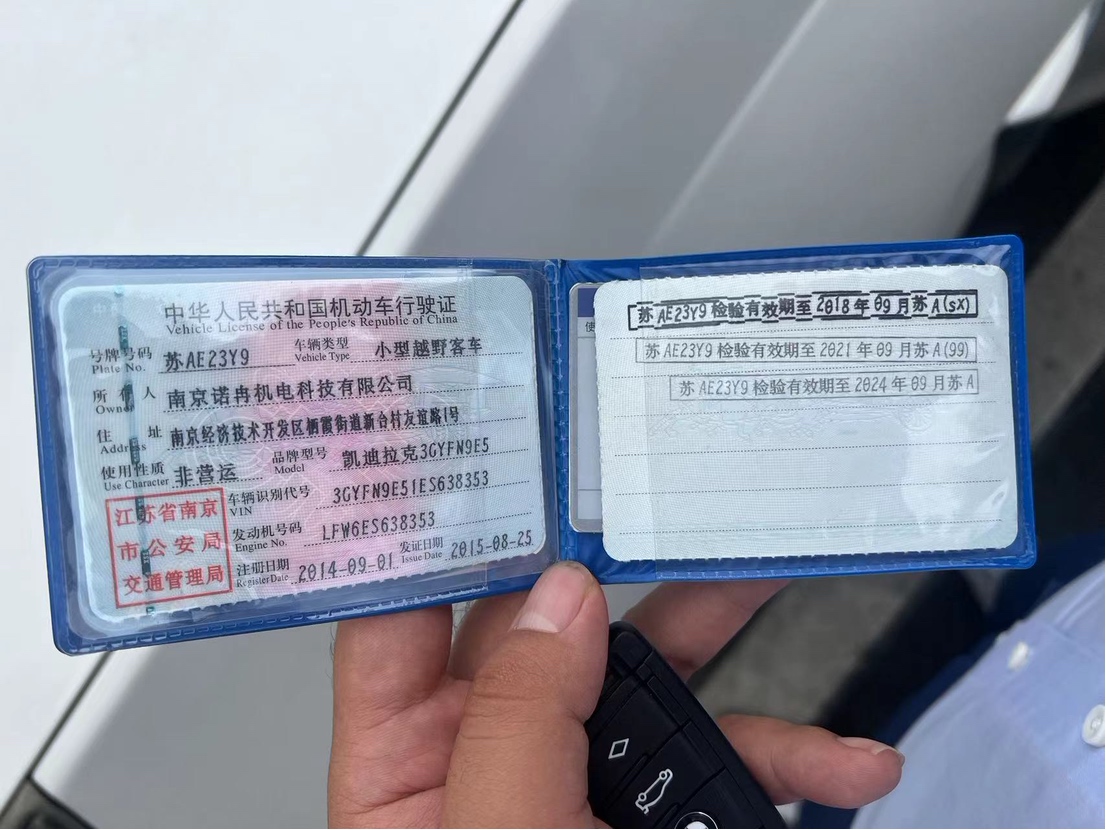 中华人民共和国机动车行驶证
Vehicle License of the People's Republic of China
号牌号码 苏AE23Y9 车辆类型 小型越野客车
Plate No. Vehicle Type
所有人 南京诺冉机电科技有限公司
Owner
住址 南京经济技术开发区栖霞街道新合村友谊路1号
Address
使用性质 非营运 品牌型号 凯迪拉克3GYFN9E5
Use Character Model
车辆识别代号 3GYFN9E51ES638353
VIN
发动机号码 LFW6ES638353
Engine No.
注册日期 2014-09-01 发证日期 2015-08-25
Register Date Issue Date
江苏省南京
市公安局
交通管理局
使
苏AE23Y9检验有效期至2018年09月苏A(sx)
苏AE23Y9检验有效期至2021年09月苏A(99)
苏AE23Y9检验有效期至2024年09月苏A